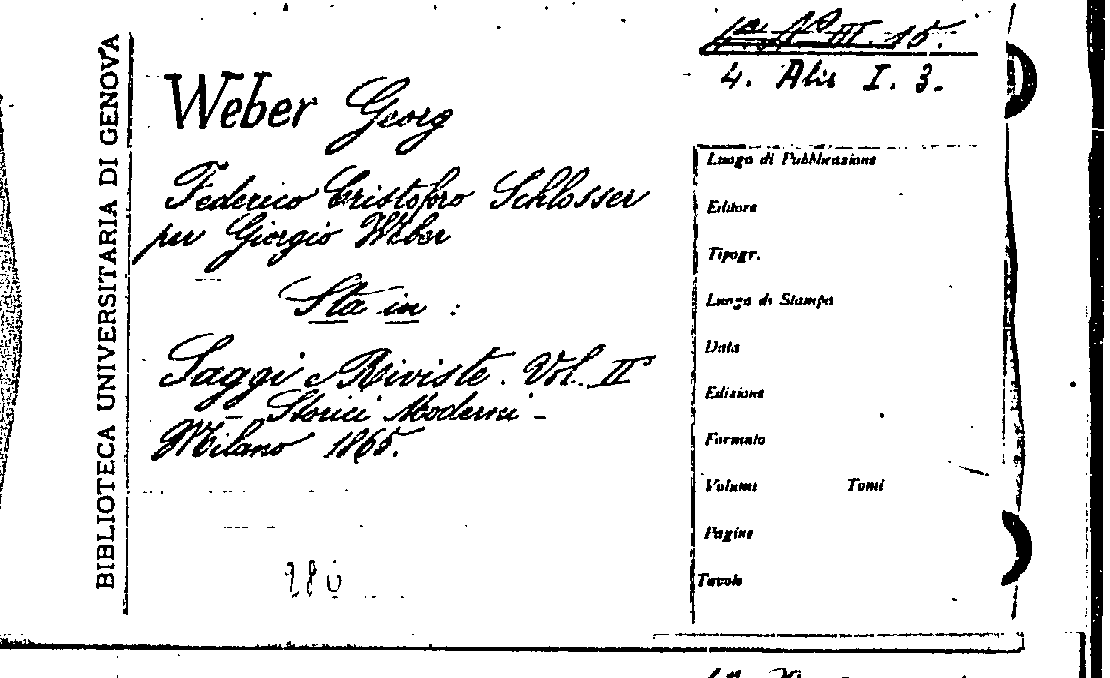 BIBLIOTECA UNIVERSITARIA DI GENOVA
III. 15.
4. Alis I. 3.
Weber Georg
Federico Cristoforo Schlosser
per Giorgio Weber
Sta in :
Saggi e Riviste. Vol. II
- Storici Moderni -
Milano 1865.
280
Luogo di Pubblicazione
Editore
Tipogr.
Luogo di Stampa
Data
Edizione
Formato
Volumi Tomi
Pagine
Tavole